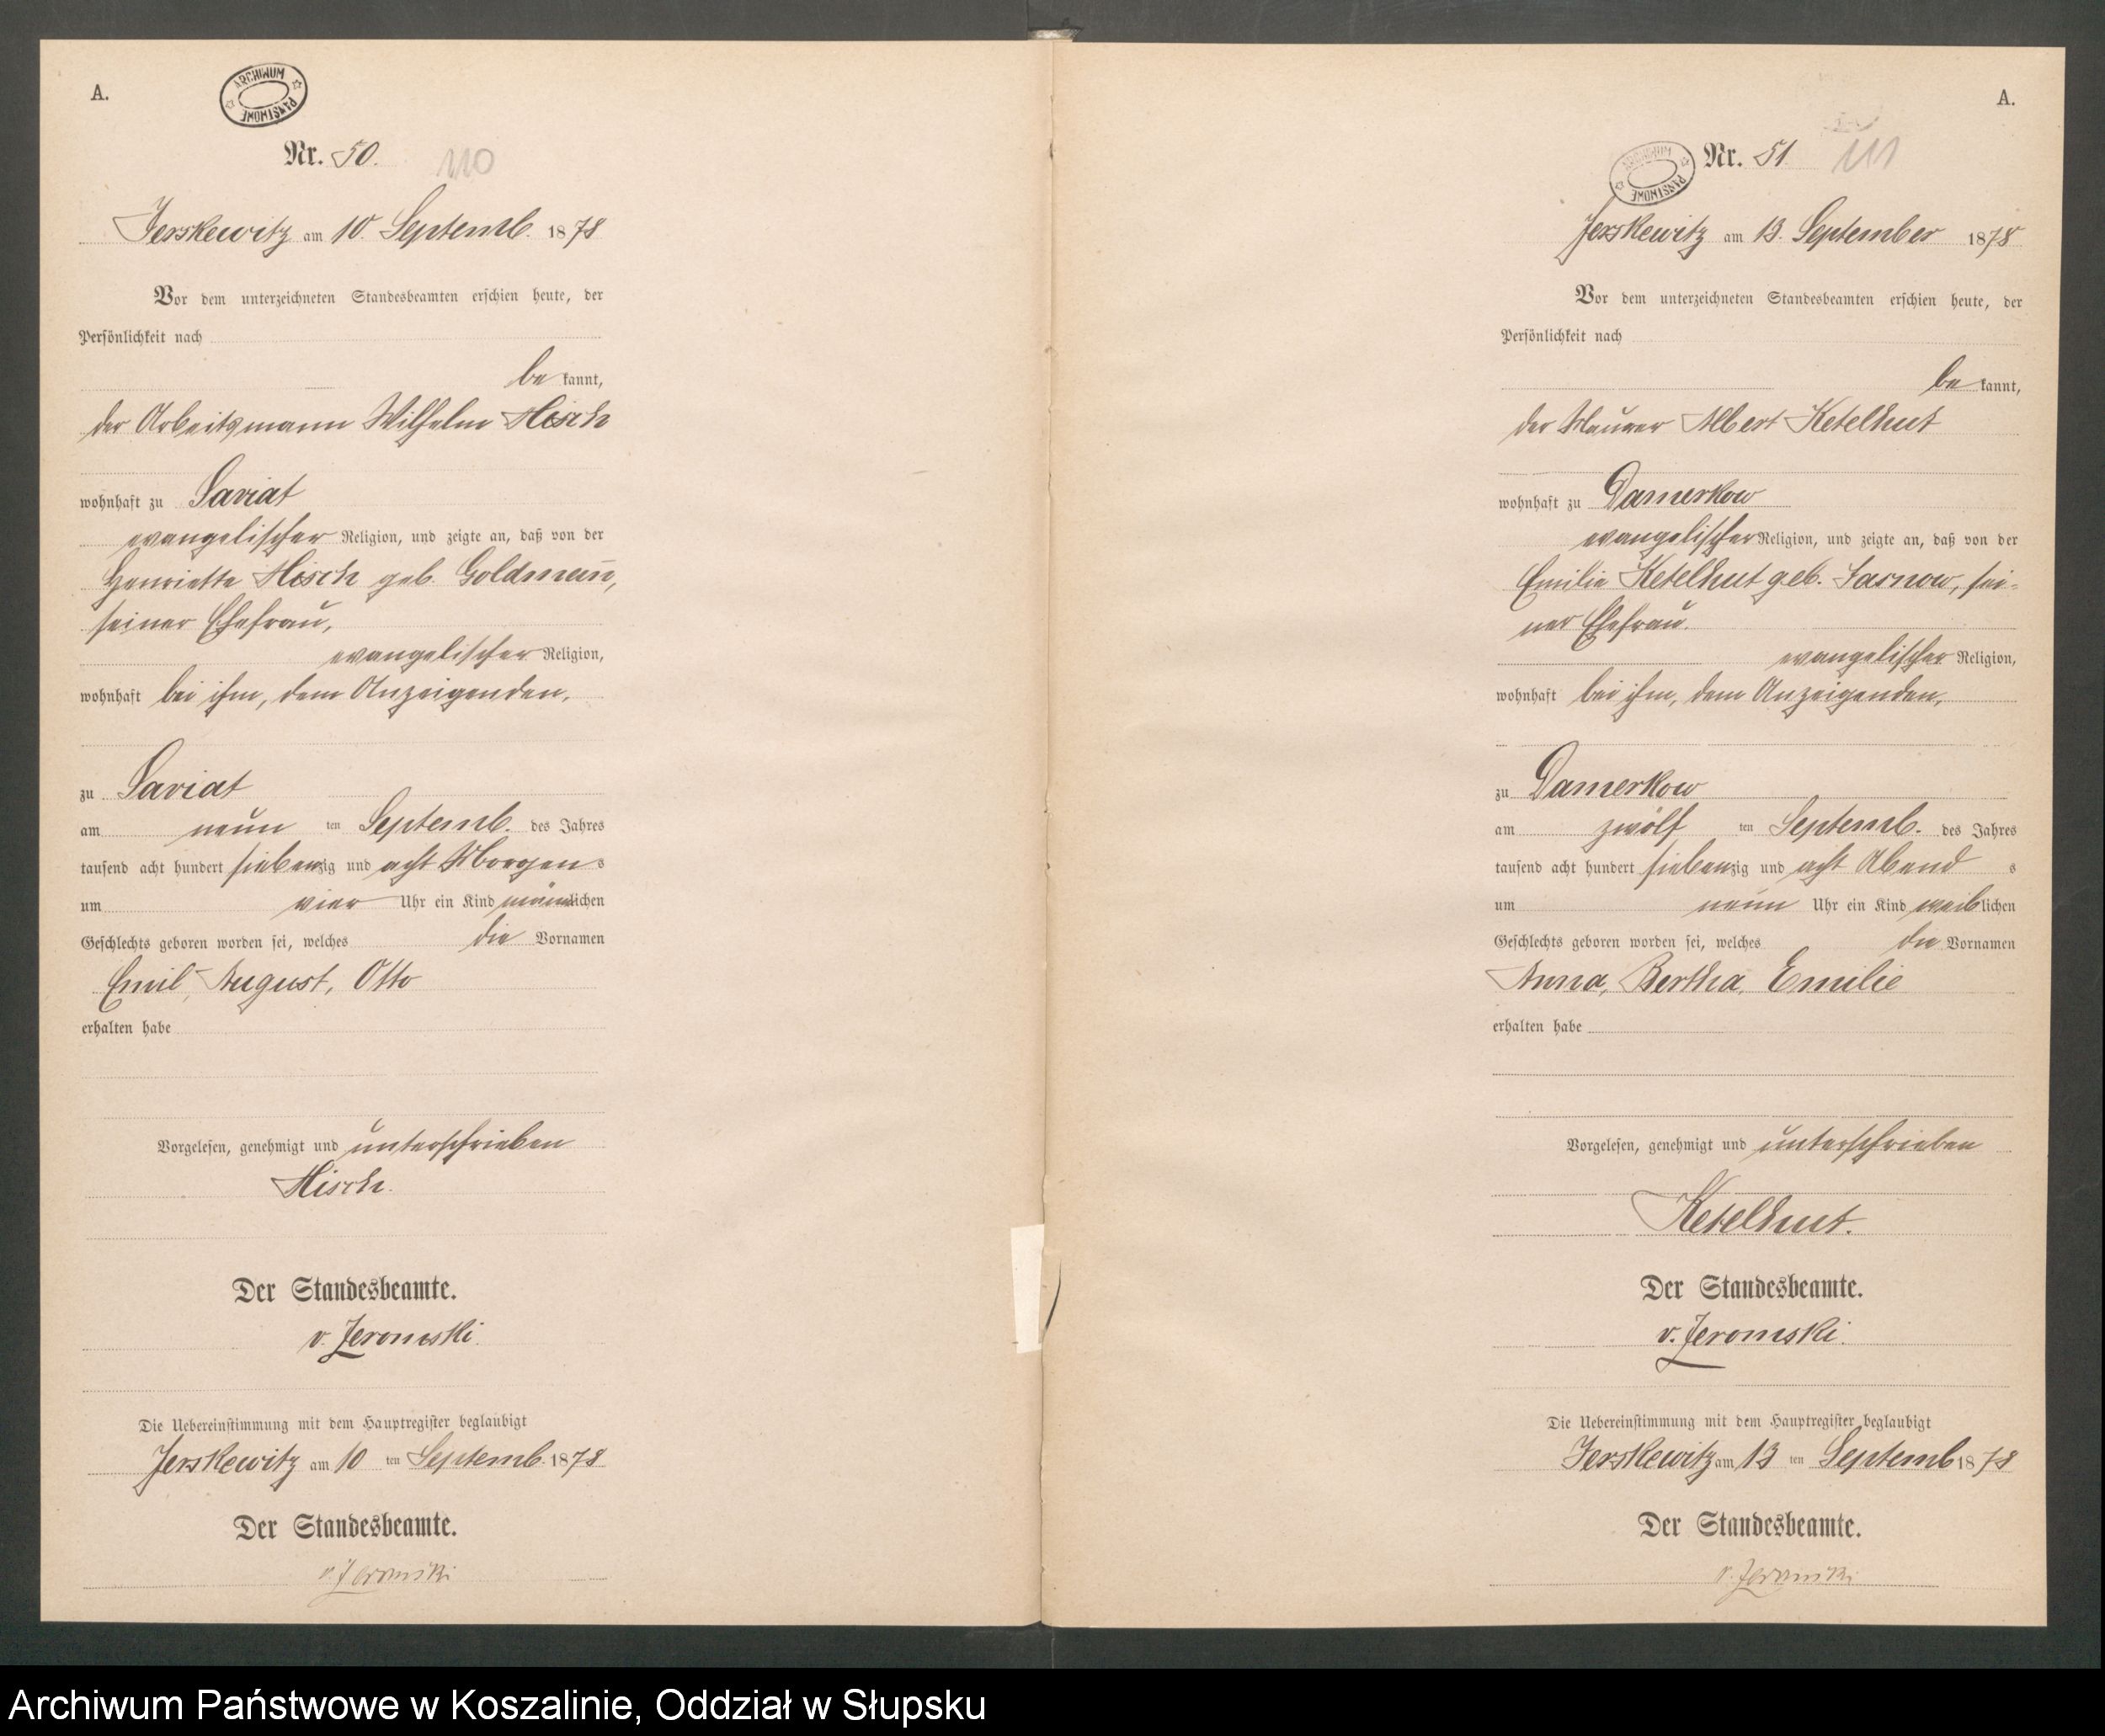 A.
ARCHIWUM PAŃSTWOWE
Nr. 50.
110
Jerskewitz am 10. Septemb. 1878
Vor dem unterzeichneten Standesbeamten erschien heute, der
Persönlichkeit nach
be kannt,
der Arbeitsmann Wilhelm Hisch
wohnhaft zu Saviat
evangelischer Religion, und zeigte an, daß von der
Henriette Hisch geb. Goldmann,
seiner Ehefrau,
evangelischer Religion,
wohnhaft bei ihm, dem Anzeigenden,
zu Saviat
am neun ten Septemb. des Jahres
tausend acht hundert siebenzig und acht Morgens
um vier Uhr ein Kind männlichen
Geschlechts geboren worden sei, welches die Vornamen
Emil, August, Otto
erhalten habe
Vorgelesen, genehmigt und unterschrieben
Hisch.
Der Standesbeamte.
v. Jeromski.
Die Uebereinstimmung mit dem Hauptregister beglaubigt
Jerskewitz am 10 ten Septemb. 1878
Der Standesbeamte.
v. Jeromski
A.
ARCHIWUM PAŃSTWOWE
Nr. 51.
111
Jerskewitz am 13. September 1878
Vor dem unterzeichneten Standesbeamten erschien heute, der
Persönlichkeit nach
be kannt,
der Maurer Albert Ketelhut
wohnhaft zu Damerkow
evangelischer Religion, und zeigte an, daß von der
Emilie Ketelhut geb. Sarnow, sei-
ner Ehefrau.
evangelischer Religion,
wohnhaft bei ihm, dem Anzeigenden,
zu Damerkow
am zwölf ten Septemb. des Jahres
tausend acht hundert siebenzig und acht Abend s
um neun Uhr ein Kind weiblichen
Geschlechts geboren worden sei, welches die Vornamen
Anna, Bertha, Emilie
erhalten habe
Vorgelesen, genehmigt und unterschrieben
Ketelhut.
Der Standesbeamte.
v. Jeromski.
Die Uebereinstimmung mit dem Hauptregister beglaubigt
Jerskewitz am 13 ten Septemb 1878
Der Standesbeamte.
v. Jeromski
Archiwum Państwowe w Koszalinie, Oddział w Słupsku